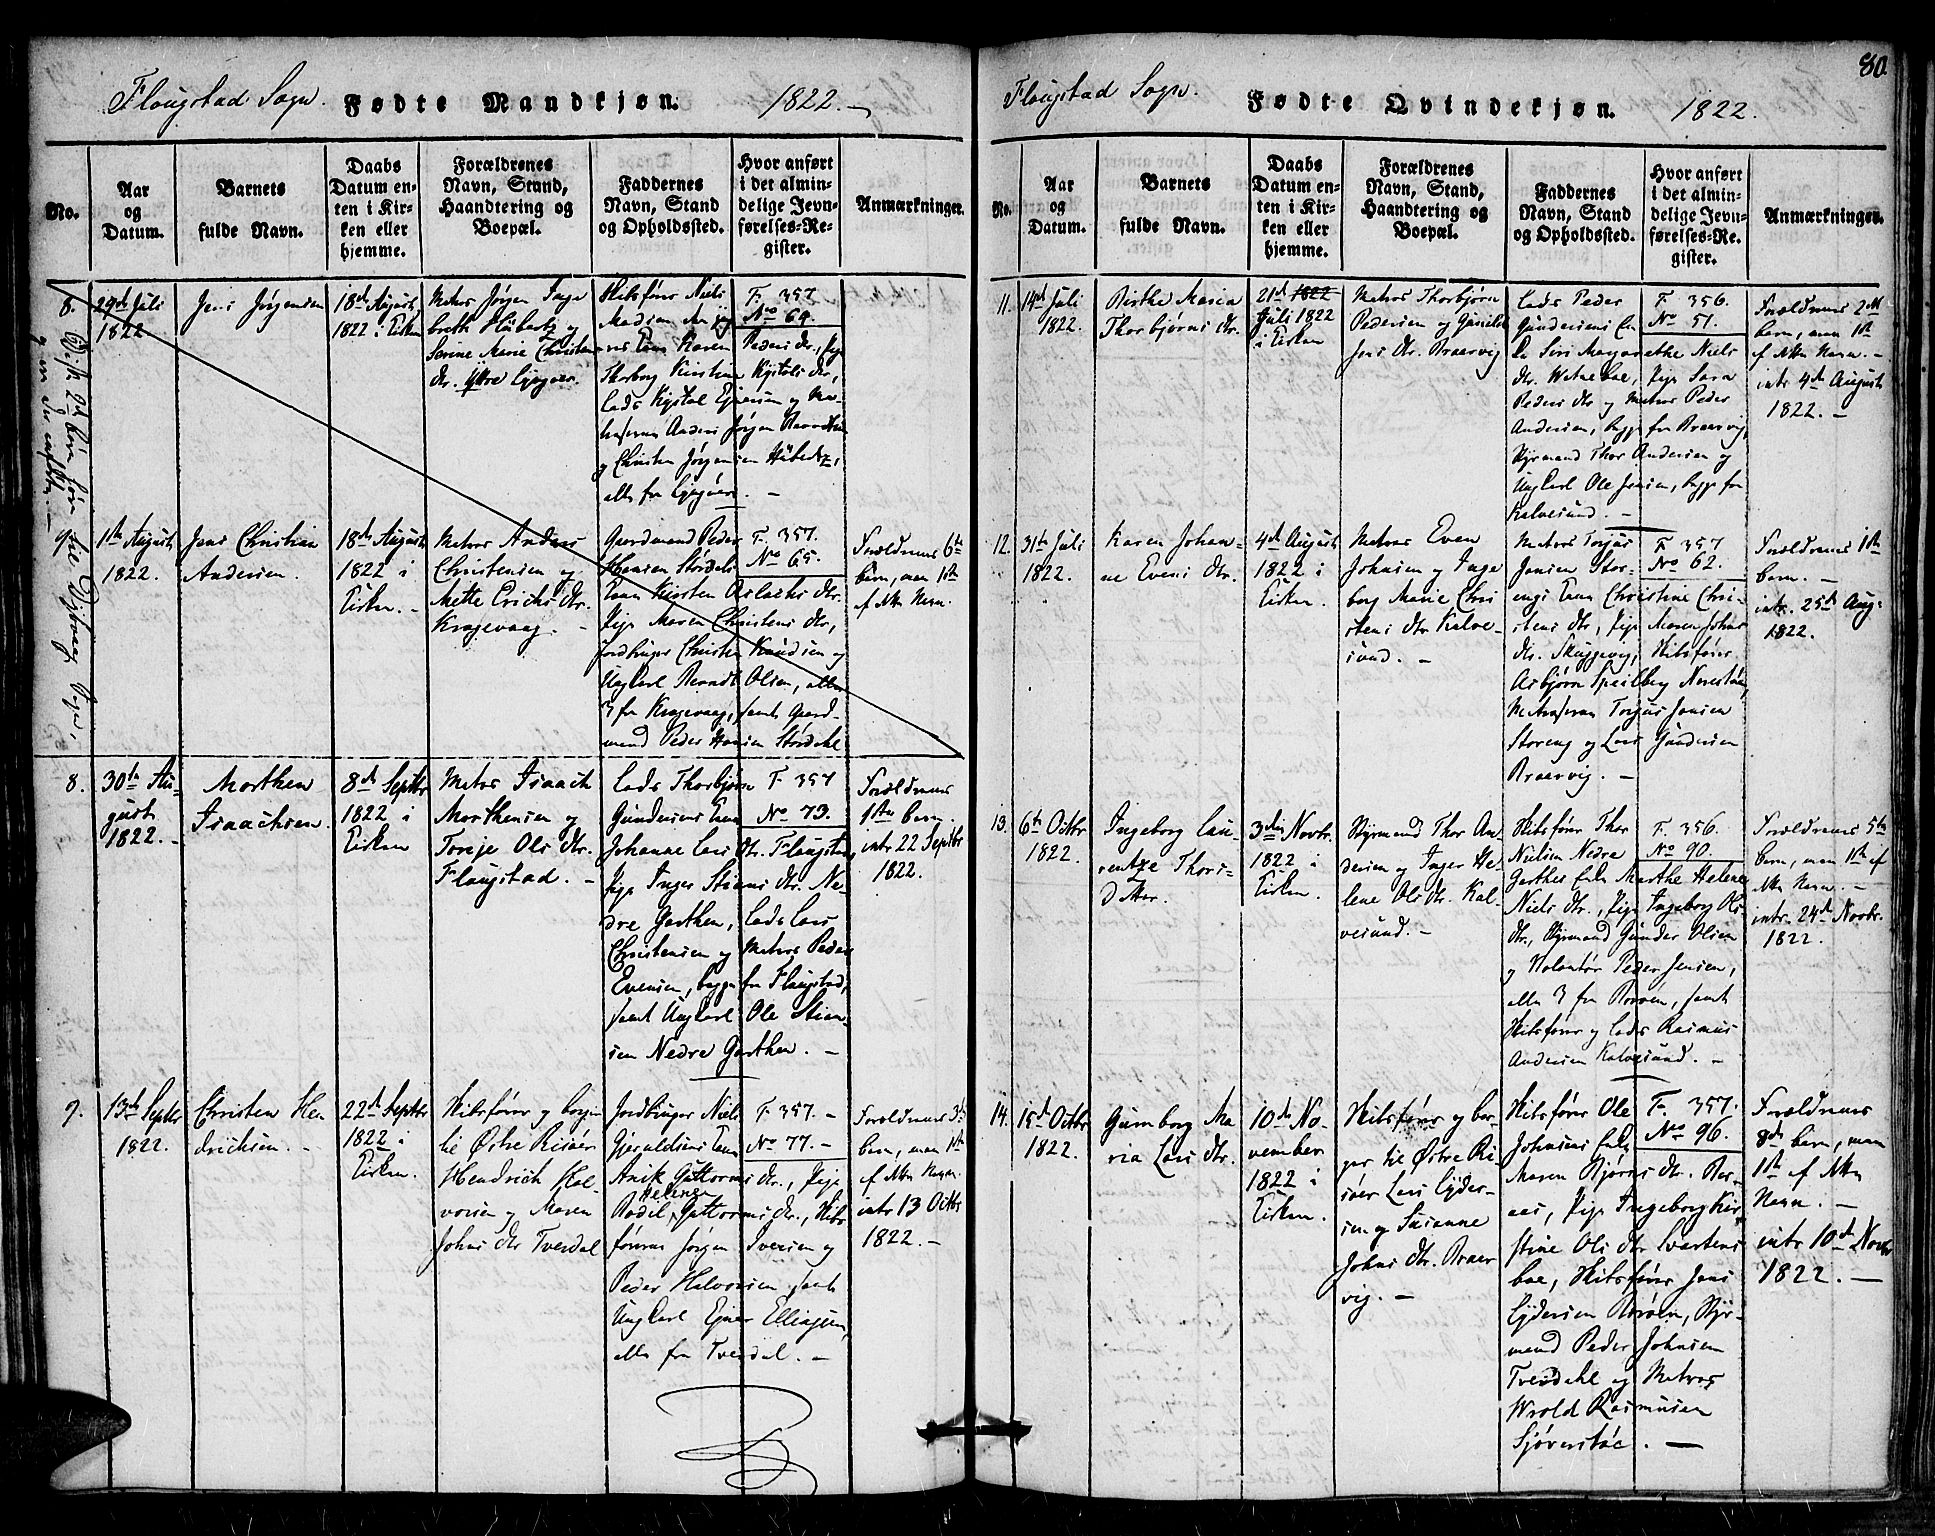 Flougstad Sogn. Fødte Mandkjøn. 1822.
No.
Aar
og
Datum.
Barnets
fulde Navn.
Daabs
Datum en-
ten i Kir-
ken eller
hjemme.
Forældrenes
Navn, Stand,
Haandtering og
Boepæl.
Faddernes
Navn, Stand
og Opholdssted.
Hvor anført
i det almin-
delige Jevn-
førelses-Re-
gister.
Anmærkninger.
8.
29de Juli
1822
Jens Jørgensen
18de August
1822 i Kirken
Matros Jørgen Inge
breth Hübertz og
Serine Marie Christens
dtr. Ytre
F. 357
No 64.
9.
1ste August
1822.
Jens Christian
Andersen.
18de August
1822 i
Kirken.
Matros Anders
Christensen og
Mette Erichs dtr.
Kragevaag.
Gaardmand Peder
Hansen Stördals
Kone Kirsten Aslachs dtr.
Pige Maren Christens dtr,
Jordbruger Christen Knudsen og
Ungkarl Berndt Olsen, alle
3 fra Kragevaag, samt Gaard-
mand Peder Hansen Stördahl
F. 357.
No 65.
Forældrenes 6te
barn, men 1ste
af dette Navn.
8.
30te Au-
gust
1822.
Morthen
Isaachsen.
8de Septbr
1822 i
Kirken
Matros Isaach
Morthensen og
Torije Ols dtr.
Flougstad.
Lods Thorbjørn
Gundersens Kone
Johanne Lars dtr. Flougstad,
Pige Inger Stians dtr. Ne-
dre Garthen, Lods Lars
Christensen og Matros Peder
Evensen, begge fra Flougstad,
samt Ungkarl Ole Stian-
sen Nedre Garthen.
F. 357
No 73.
Forældrenes
1ste barn.
intr 22 Septbr
1822.
9.
13de Septbr
1822.
Christen Hen
drichsen.
22de Septbr
1822 i
Kirken
Skibsfører og borger
til Østre Risøer
Hendrich Hal-
vorsen og Maren
Johns dtr Tverdal
Jordbruger Niels
Gjeruldsens Kone
Anik Guttorms dtr., Pige
Bodil Helene Guttorms dtr., Skibs
førerne Jørgen Iversen og
Peder Halvorsen samt
Ungkarl Ejner Ellingsen,
alle fra Tverdal.
F. 357.
No 77.
Forældrenes 3die
barn, men 1ste
af dette Navn.
intr 13 Octbr
1822.
80.
Flougstad Sogn. Fødte Qvindekjøn. 1822.
No.
Aar
og
Datum.
Barnets
fulde Navn.
Daabs
Datum en-
ten i Kir-
ken eller
hjemme.
Forældrenes
Navn, Stand,
Haandtering og
Boepæl.
Faddernes
Navn, Stand
og Opholdssted.
Hvor anført
i det almin-
delige Jevn-
førelses-Re-
gister.
Anmærkninger.
11.
14de Juli
1822.
Birthe Maria
Thorbjørns dtr.
21de 1822
Juli 1822
i Kirken
Matros Thorbjørn
Pedersen og
Jens dtr. Braarvig
Lods Peder
Gundersens
Siri Margarethe Niels
dtr. Pige Sara
Peders dtr og Matros Peder
Andersen, begge fra Braarvig,
Styrmand Thor Andersen og
Ungkarl Ole Jensen, begge fra
Kalvesund.
F. 356.
No 51.
Forældrenes 2det
barn, men 1ste
af dette Navn.
intr. 4de August
1822.
12.
31te Juli
1822.
Karen Johan-
ne Evens dtr.
4de August
1822 i
Kirken.
Matros Even
Johnsen og Inge
borg Marie Chris
stens dtr Kalve-
sund.
Matros Torjus
Jensen Stor-
engs Kone Christine Chri-
stens dtr, Pige Maren Johns
dtr. Skuggevig, Skibsfører
Asbjørn Speilberg Narestöe,
Matroserne Torjus Jensen
Storeng og Lars Gundersen
Braarvig.
F. 357
No 62.
Forældrenes 1ste
barn.
intr. 25de Aug:
1822.
13.
6te Octbr
1822.
Ingeborg Lau-
rentze Thors-
Datter.
3die Novbr.
1822 i
Kirken.
Styrmand Thor An-
dersen og Inger He-
lene Ols dtr. Kal-
vesund.
Skibsfører Thor
Nielsen Nedre
Garthes Enke Marthe Helene
Niels dtr., Pige Ingeborg Ols
dtr., Styrmand Gunder Olsen
og Volontør Peder Jensen,
alle 3 fra Borøen, samt
Skibsfører og Lods Rasmus
Andersen Kalvesund.
F. 356.
No 90.
Forældrenes 5te
barn, men 1ste af
dette Navn.
intr. 24de Novbr.
1822.
14.
15de Octbr
1822.
Gunborg Ma
ria Lars dtr.
10de No-
vember
1822 i
Kirken.
Skibsfører og bor-
ger til Østre Ri-
søer Lars Eyder-
sen og Susanne
Johns dtr. Braar
vig.
Skibsfører Ole
Johnsens Enke
Maren Bjørns dtr. Bor-
aas, Pige Ingeborg Kir-
stine Ols dtr Svartens
boe, Skibsfører Jens
Eydersen Borøen, Styr-
mand Peder Johnsen
Tverdahl og Matros
Wrold Rasmusen
Sjøverstøe.
F. 357.
No 96.
Forældrenes
8de barn, men
1ste af dette
Navn.
intr 10de Novbr
1822.